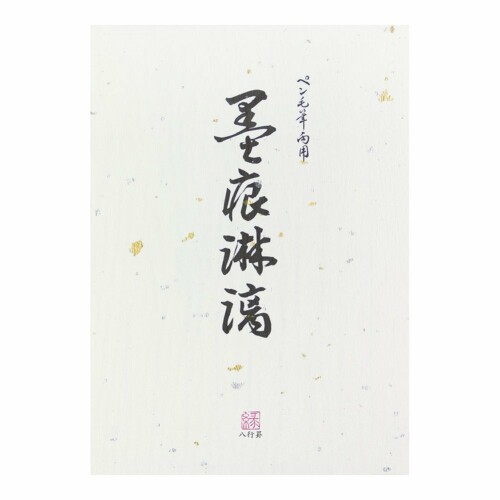 ペン毛筆両用
墨痕淋漓
縁
八行罫